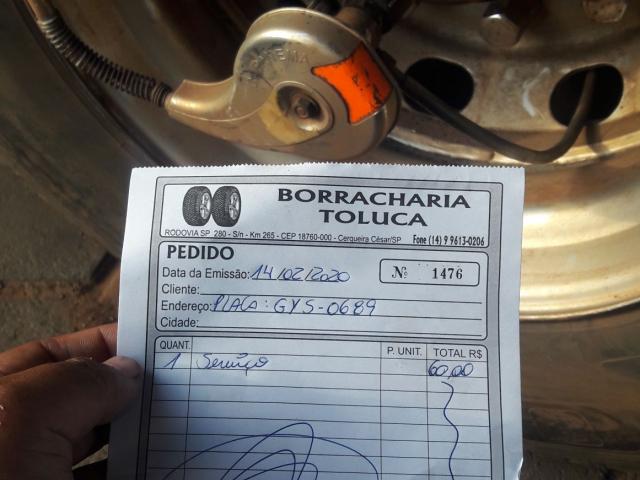 BORRACHARIA
TOLUCA
RODOVIA SP 280 - S/n - Km 265 - CEP 18760-000 - Cerqueira César/SP Fone (14) 9 9613-0206
PEDIDO
Data da Emissão: 14/02/2020 Nº 1476
Cliente:
Endereço: PlACA: GYS-0689
Cidade:
QUANT. P. UNIT. TOTAL R$
1 Serviço 60,00